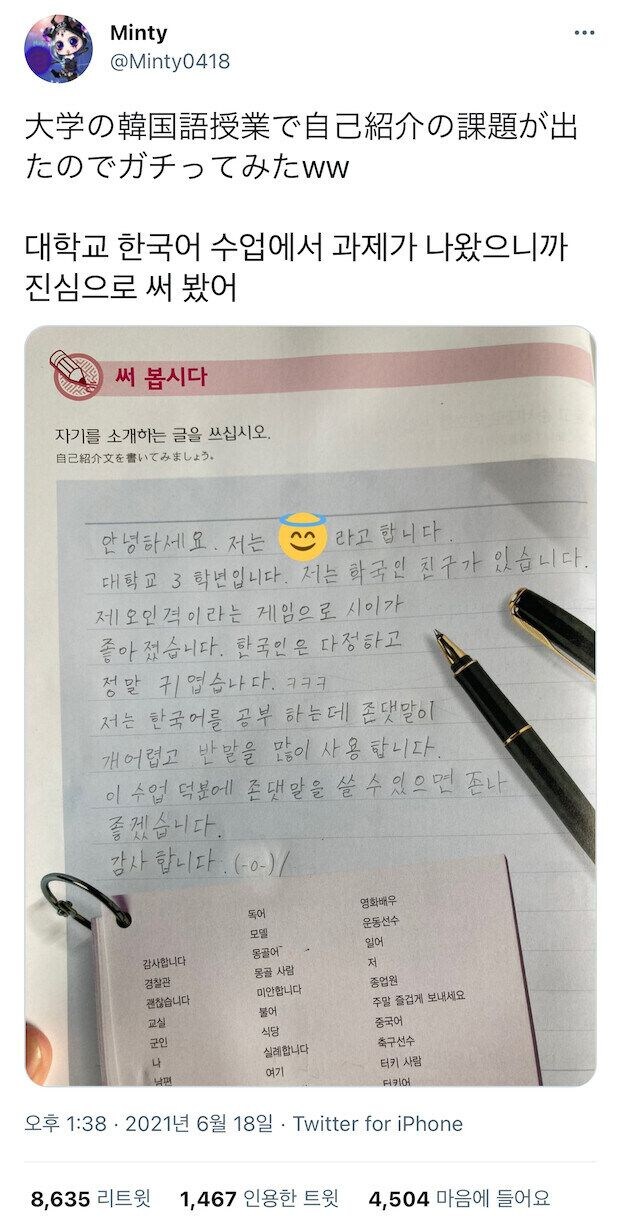 Minty
@Minty0418
大学の韓国語授業で自己紹介の課題が出
たのでガチってみたww
대학교 한국어 수업에서 과제가 나왔으니까
진심으로 써 봤어
써 봅시다
자기를 소개하는 글을 쓰십시오.
自己紹介文を書いてみましょう。
안녕하세요. 저는 😇 라고 합니다.
대학교 3 학년입니다. 저는 학국인 친구가 있습니다.
제오인격이라는 게임으로 시이가
좋아졌습니다. 한국인은 다정하고
정말 귀엽습나다. ㅋㅋㅋ
저는 한국어를 공부 하는데 존댓말이
개어렵고 반말을 많이 사용합니다.
이 수업 덕분에 존댓말을 쓸 수 있으면 존나
좋겠습니다.
감사 합니다. (-o-)/
감사합니다
경찰관
괜찮습니다
교실
군인
나
남편
독어
모델
몽골어
몽골 사람
미안합니다
불어
식당
실례합니다
여기
영화배우
운동선수
일어
저
종업원
주말 즐겁게 보내세요
중국어
축구선수
터키 사람
터키어
오후 1:38 · 2021년 6월 18일 · Twitter for iPhone
8,635 리트윗 1,467 인용한 트윗 4,504 마음에 들어요